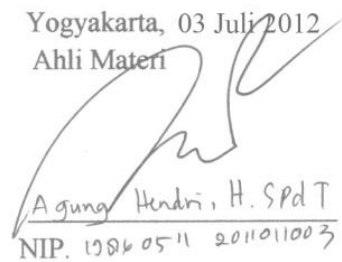 Yogyakarta, 03 Juli 2012
Ahli Materi
Agung Hendri, H. SPd T
NIP. 19860511 2011011003